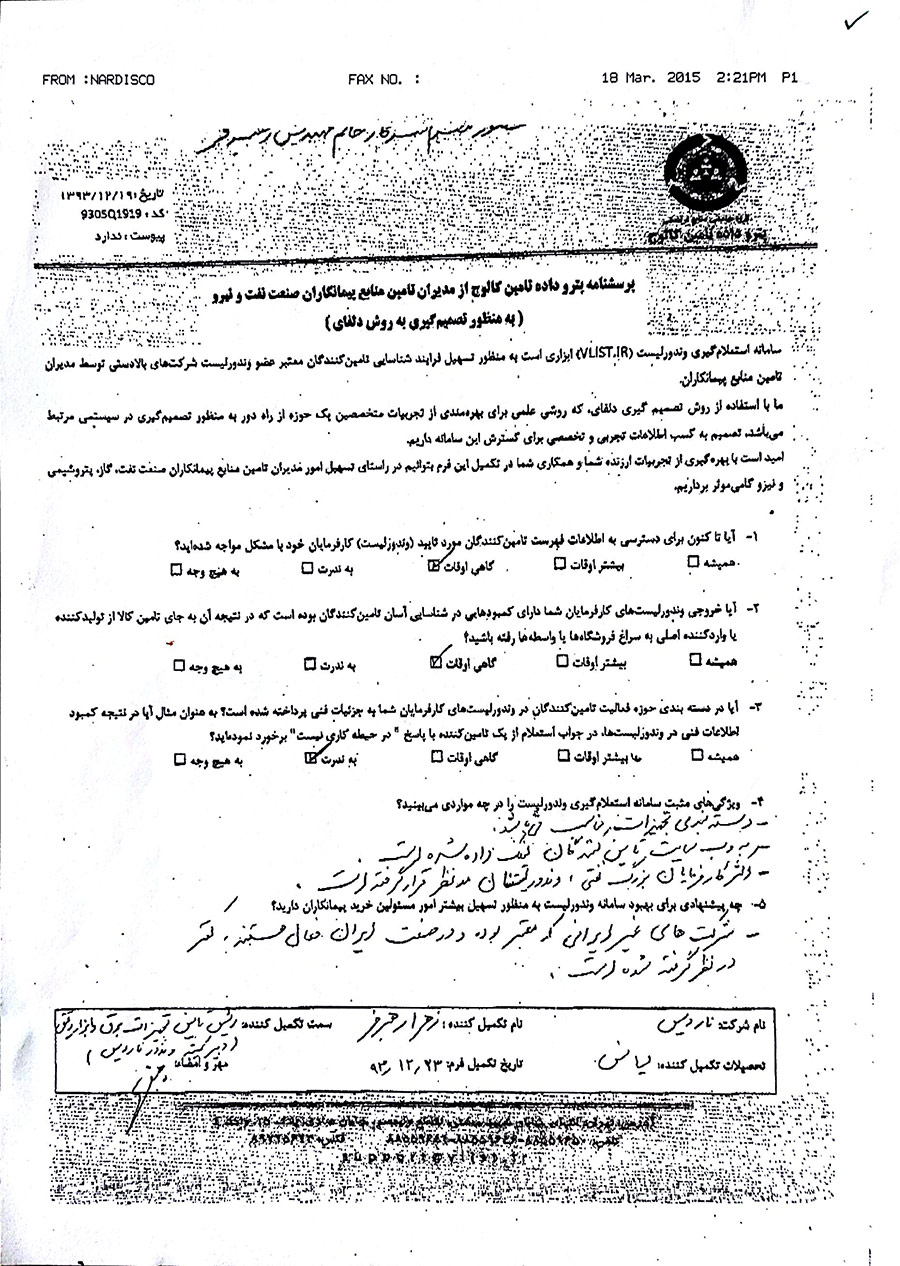 FROM :NARDISCO FAX NO. : 18 Mar. 2015 2:21PM P1
تاریخ: ۱۳۹۳/۱۲/۱۹
کد: 9305Q1919
پیوست: ندارد
پترو داده تامین کالوج
پرسشنامه پترو داده تامین کالوج از مدیران تامین منابع پیمانکاران صنعت نفت و نیرو
( به منظور تصمیم‌گیری به روش دلفای )
سامانه استعلام‌گیری وندورلیست (VLIST.IR) ابزاری است به منظور تسهیل فرایند شناسایی تامین‌کنندگان معتبر عضو وندورلیست شرکت‌های بالادستی توسط مدیران
تامین منابع پیمانکاران.
ما با استفاده از روش تصمیم گیری دلفای، که روشی علمی برای بهره‌مندی از تجربیات متخصصین یک حوزه از راه دور به منظور تصمیم‌گیری در سیستمی مرتبط
می‌باشد، تصمیم به کسب اطلاعات تجربی و تخصصی برای گسترش این سامانه داریم.
امید است با بهره‌گیری از تجربیات ارزنده شما و همکاری شما در تکمیل این فرم بتوانیم در راستای تسهیل امور مدیران تامین منابع پیمانکاران صنعت نفت، گاز، پتروشیمی
و نیرو گامی موثر برداریم.
۱- آیا تا کنون برای دسترسی به اطلاعات فهرست تامین‌کنندگان مورد تایید (وندورلیست) کارفرمایان خود با مشکل مواجه شده‌اید؟
همیشه ☐ بیشتر اوقات ☐ گاهی اوقات ☑ به ندرت ☐ به هیچ وجه ☐
۲- آیا خروجی وندورلیست‌های کارفرمایان شما دارای کمبودهایی در شناسایی آسان تامین‌کنندگان بوده است که در نتیجه آن به جای تامین کالا از تولیدکننده
یا واردکننده اصلی به سراغ فروشگاه‌ها یا واسطه‌ها رفته باشید؟
همیشه ☐ بیشتر اوقات ☐ گاهی اوقات ☑ به ندرت ☐ به هیچ وجه ☐
۳- آیا در دسته بندی حوزه فعالیت تامین‌کنندگان در وندورلیست‌های کارفرمایان شما به جزئیات فنی پرداخته شده است؟ به عنوان مثال آیا در نتیجه کمبود
اطلاعات فنی در وندورلیست‌ها، در جواب استعلام از یک تامین‌کننده با پاسخ " در حیطه کاری نیست" برخورد نموده‌اید؟
همیشه ☐ بیشتر اوقات ☐ گاهی اوقات ☐ به ندرت ☑ به هیچ وجه ☐
۴- ویژگی‌های مثبت سامانه استعلام‌گیری وندورلیست را در چه مواردی می‌بینید؟
- دسته بندی تجهیزات مناسب می‌باشد.
- به وب سایت تامین کنندگان لینک داده شده است.
- اکثر کارفرمایان بزرگ نفتی، وندورلیستشان مدنظر قرار گرفته است.
۵- چه پیشنهادی برای بهبود سامانه وندورلیست به منظور تسهیل بیشتر امور مسئولین خرید پیمانکاران دارید؟
- شرکت های غیر ایرانی که معتبر بوده و در صنعت ایران فعال هستند، کمتر
در نظر گرفته شده است.
نام شرکت: ناردیس نام تکمیل کننده: سمت تکمیل کننده: رئیس تامین تجهیزات برق و ابزار دقیق
تحصیلات تکمیل کننده: لیسانس تاریخ تکمیل فرم: ۹۳,۱۲,۲۳ مهر و امضاء: